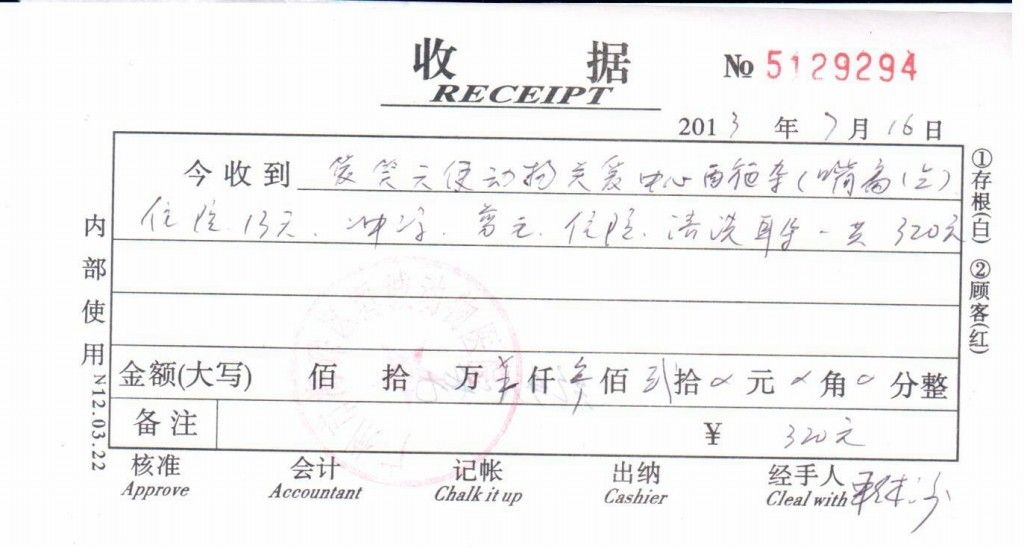 收 据
RECEIPT
№ 5129294
2013 年 7 月 16 日
今收到 笑天使动物关爱中心
住院 13天. 住院. 清洗耳朵 - 共 320元
金额(大写) 佰 拾 万 仟 叁 佰 贰 拾 0 元 0 角 0 分整
备注 ¥ 320元
核准 会计 记帐 出纳 经手人
Approve Accountant Chalk it up Cashier Cleal with
内部使用 N12.03.22
①存根(白) ②顾客(红)